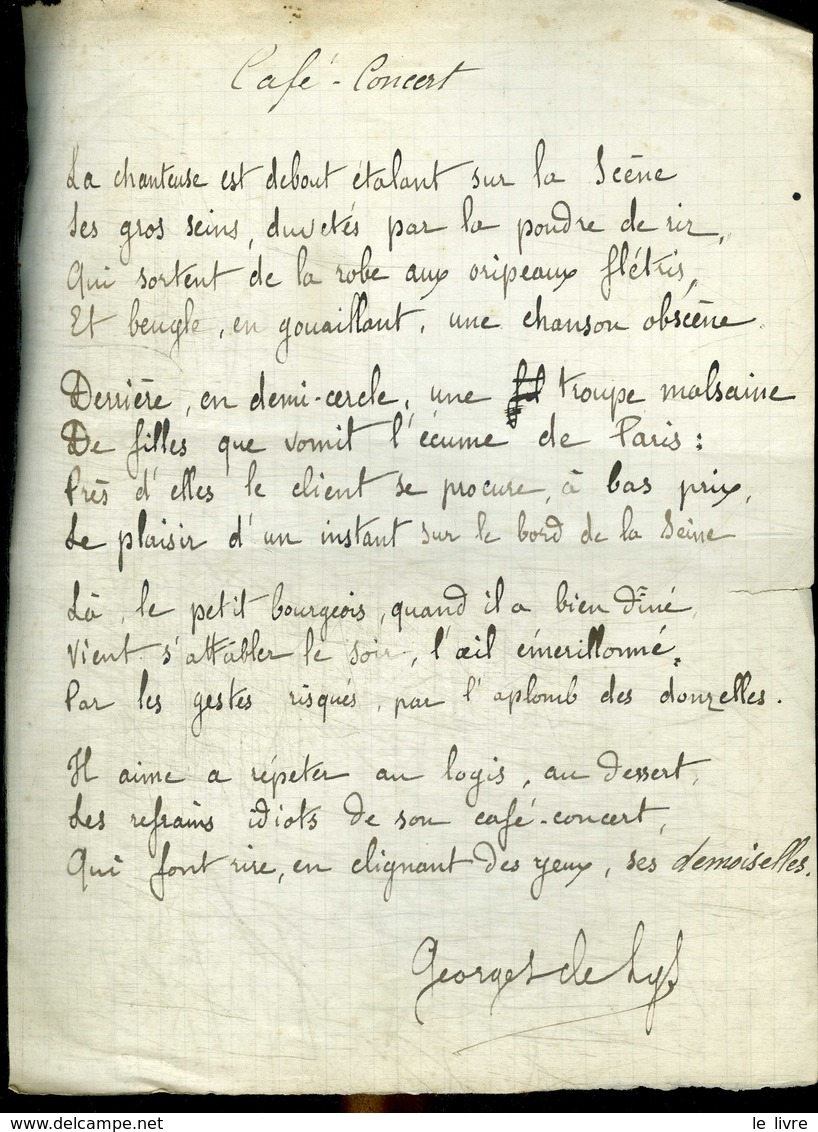 Café-Concert
La chanteuse est debout étalant sur la Scène
Ses gros seins, duvetés par la poudre de riz,
Qui sortent de la robe aux oripeaux flétris,
Et beugle, en gouaillant, une chanson obscène.
Derrière, en demi-cercle, une troupe malsaine
De filles que vomit l'écume de Paris :
Près d'elles le client se procure, à bas prix,
Le plaisir d'un instant sur le bord de la Seine
Là, le petit bourgeois, quand il a bien dîné,
Vient s'attabler le soir, l'œil émerillonné,
Par les gestes risqués, par l'aplomb des donzelles.
Il aime a répéter au logis, au dessert,
Les refrains idiots de son café-concert,
Qui font rire, en clignant des yeux, ses demoiselles.
Georges de Lys
le livre